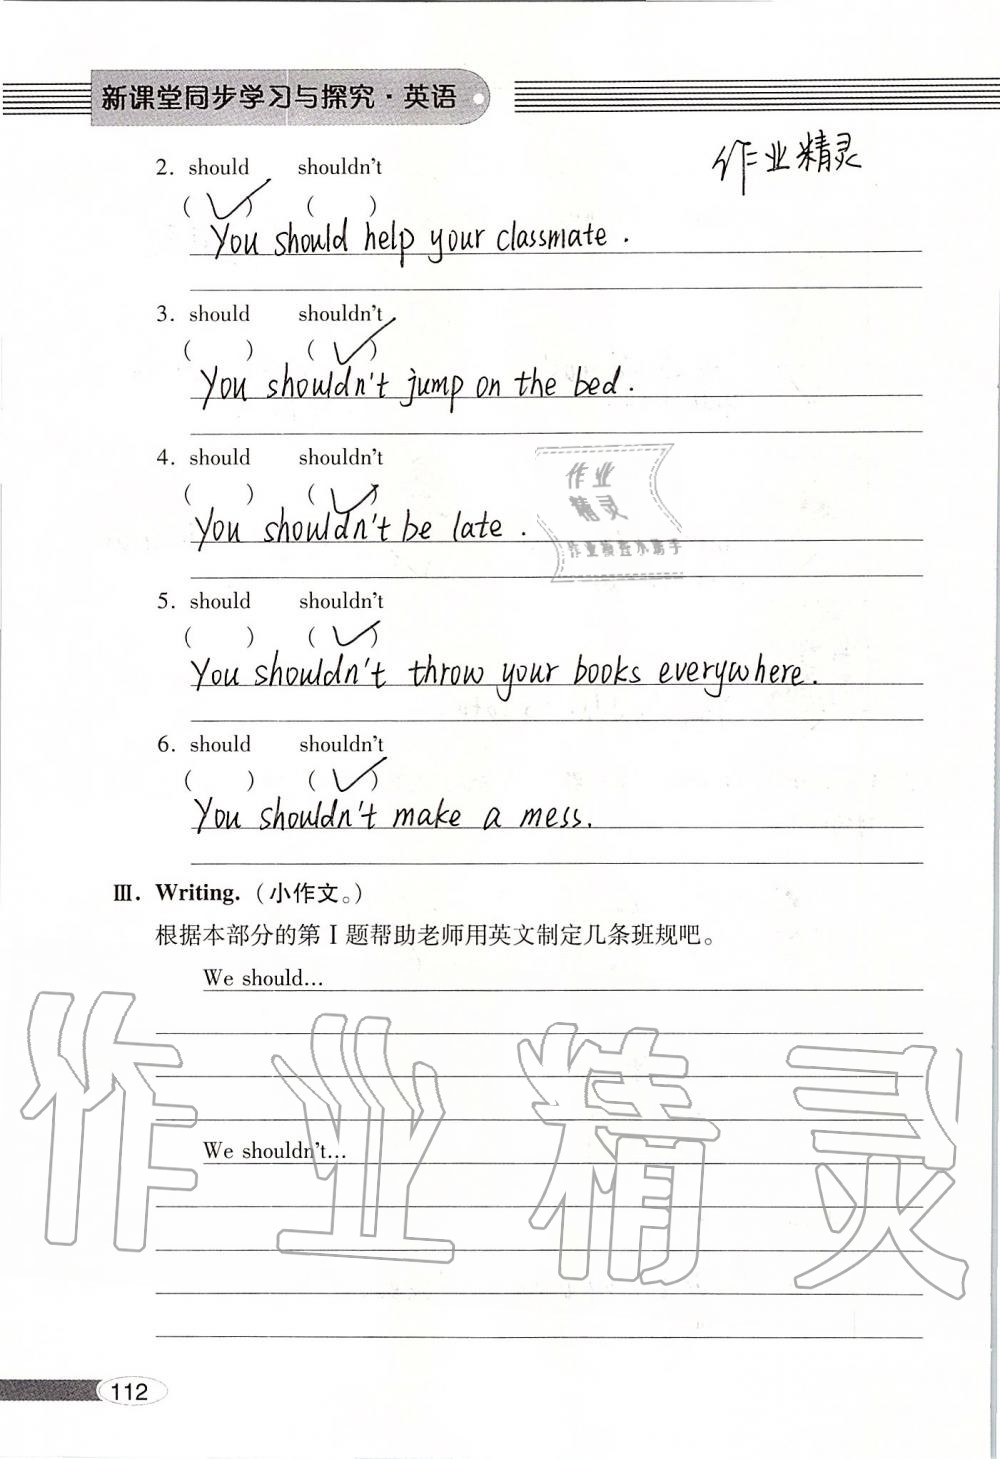 新课堂同步学习与探究·英语
作业精灵
2. should shouldn't
( ✓ ) ( )
You should help your classmate.
3. should shouldn't
( ) ( ✓ )
You shouldn't jump on the bed.
4. should shouldn't
( ) ( ✓ )
You shouldn't be late.
作业
精灵
5. should shouldn't
( ) ( ✓ )
You shouldn't throw your books everywhere.
6. should shouldn't
( ) ( ✓ )
You shouldn't make a mess.
Ⅲ. Writing.（小作文。）
根据本部分的第Ⅰ题帮助老师用英文制定几条班规吧。
We should...
作业精灵
We shouldn't...
112